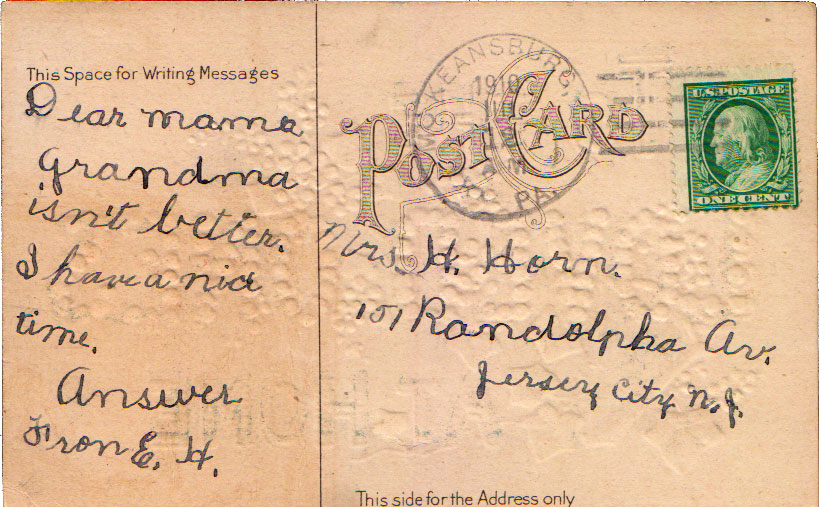 This Space for Writing Messages
Dear mama
Grandma
isn't better.
I have a nic
time.
Answer
Fron E. H.
POST CARD
KEANSBURG,
1910
PA
U.S. POSTAGE
ONE CENT
Mrs. H. Horn.
151 Randolpha Av.
Jersey City N.J.
This side for the Address only